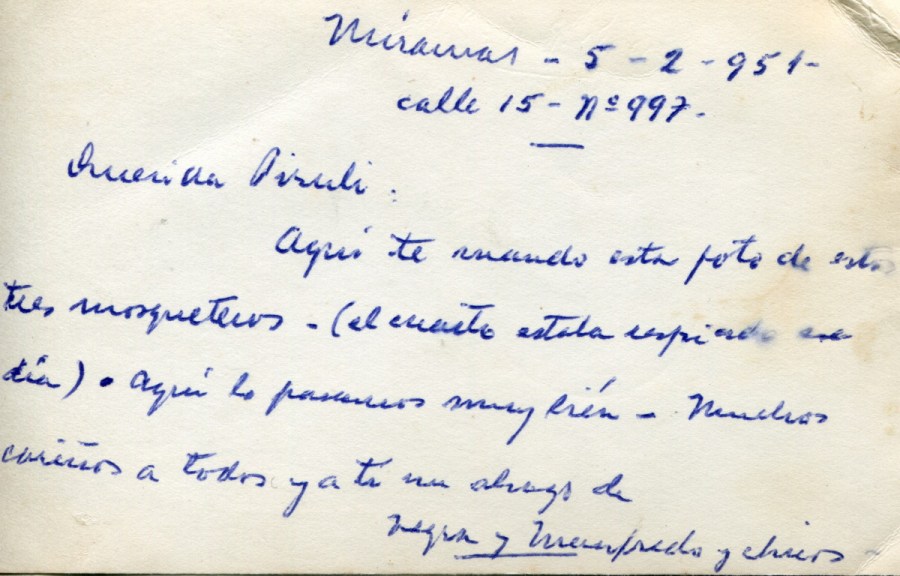 Miramar - 5 - 2 - 951 -
calle 15 - Nº 997 -
Querida Piruli :
Aqui te mando esta foto de estos
tres mosqueteros - (el cuarto estaba respiado ese
dia) . Aqui lo pasamos muy bién - Muchos
cariños a todos y a ti un abrazo de
Negra y Manfredo y chicos -